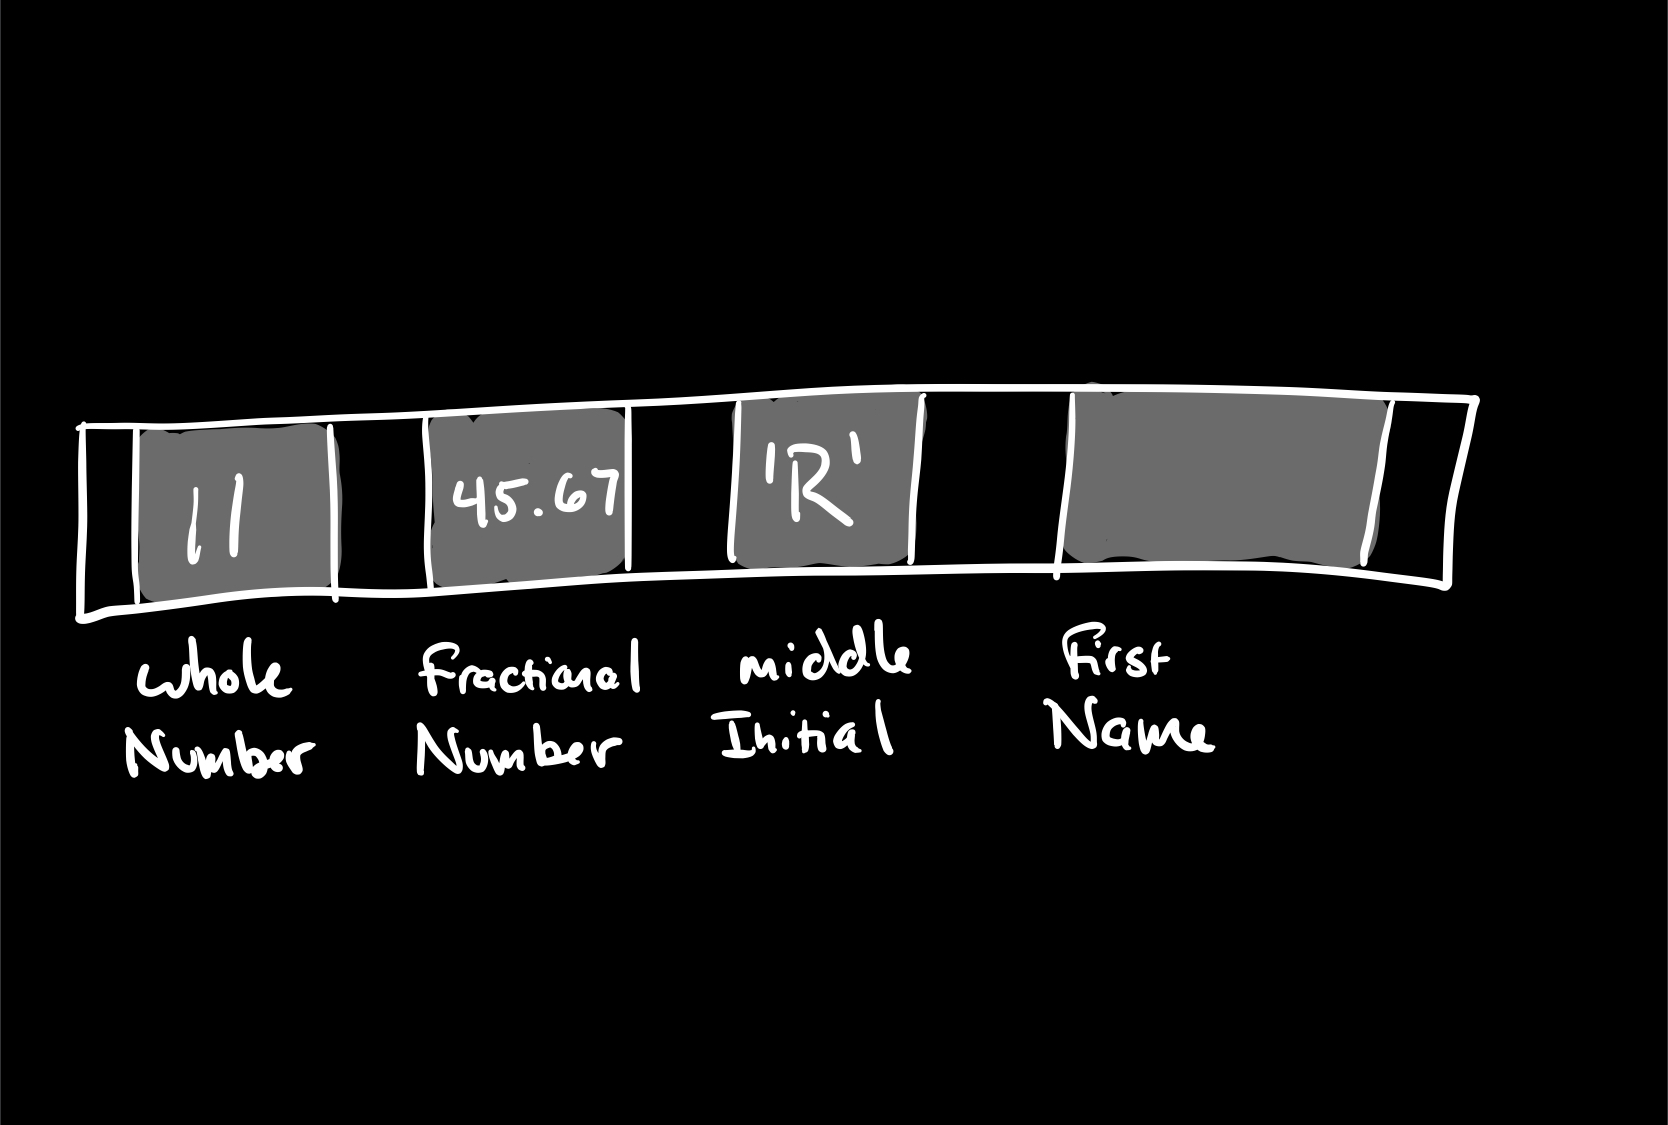 11
45.67
'R'
whole
Number
fractional
Number
middle
Initial
First
Name